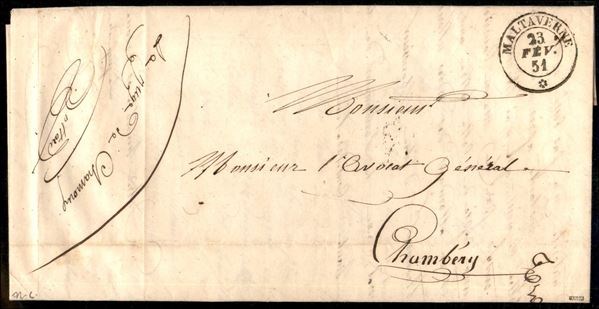 MALTAVERNE
23
FÉV.
51
Monsieur
Monsieur l'Avocat Général
Chambéry
Le Juge de Chamoux